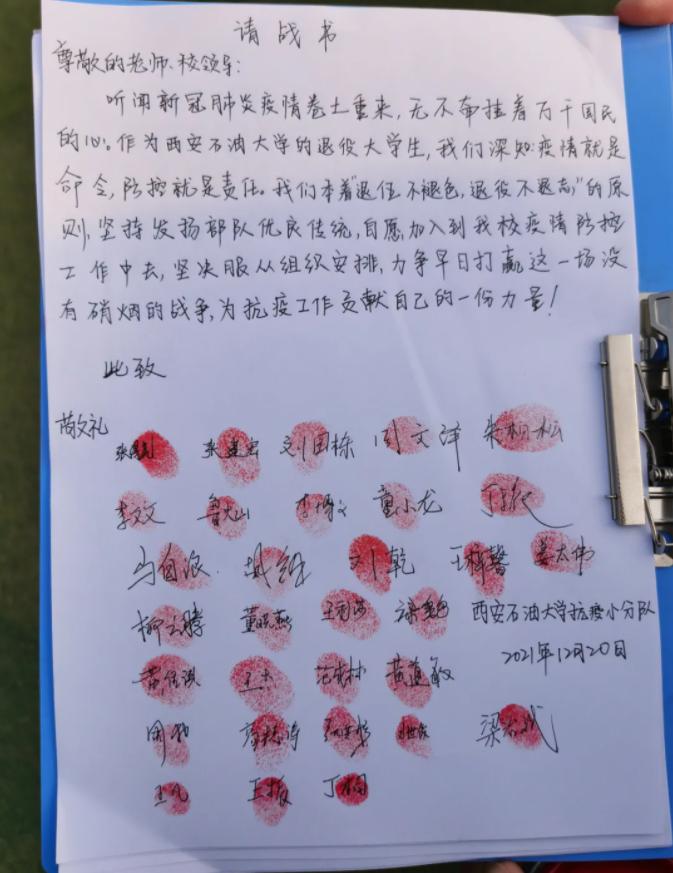 请战书
尊敬的老师、校领导:
听闻新冠肺炎疫情卷土重来,无不牵挂着万千国民
的心。作为西安石油大学的退役大学生,我们深知:疫情就是
命令,防控就是责任。我们本着"退伍不褪色,退役不退志"的原
则,坚持发扬部队优良传统,自愿加入到我校疫情防控
工作中去,坚决服从组织安排,力争早日打赢这一场没
有硝烟的战争,为抗疫工作贡献自己的一份力量!
此致
敬礼
张建宏 刘国栋 周文洋 朱桐松
李文文 鲁大山 李博文 童小龙
马自浪 刘乾 王科馨 姜太伟
柳云腾 董晓燕 西安石油大学抗疫小分队
2021年12月20日
王杰 黄道敏
王凡 王振